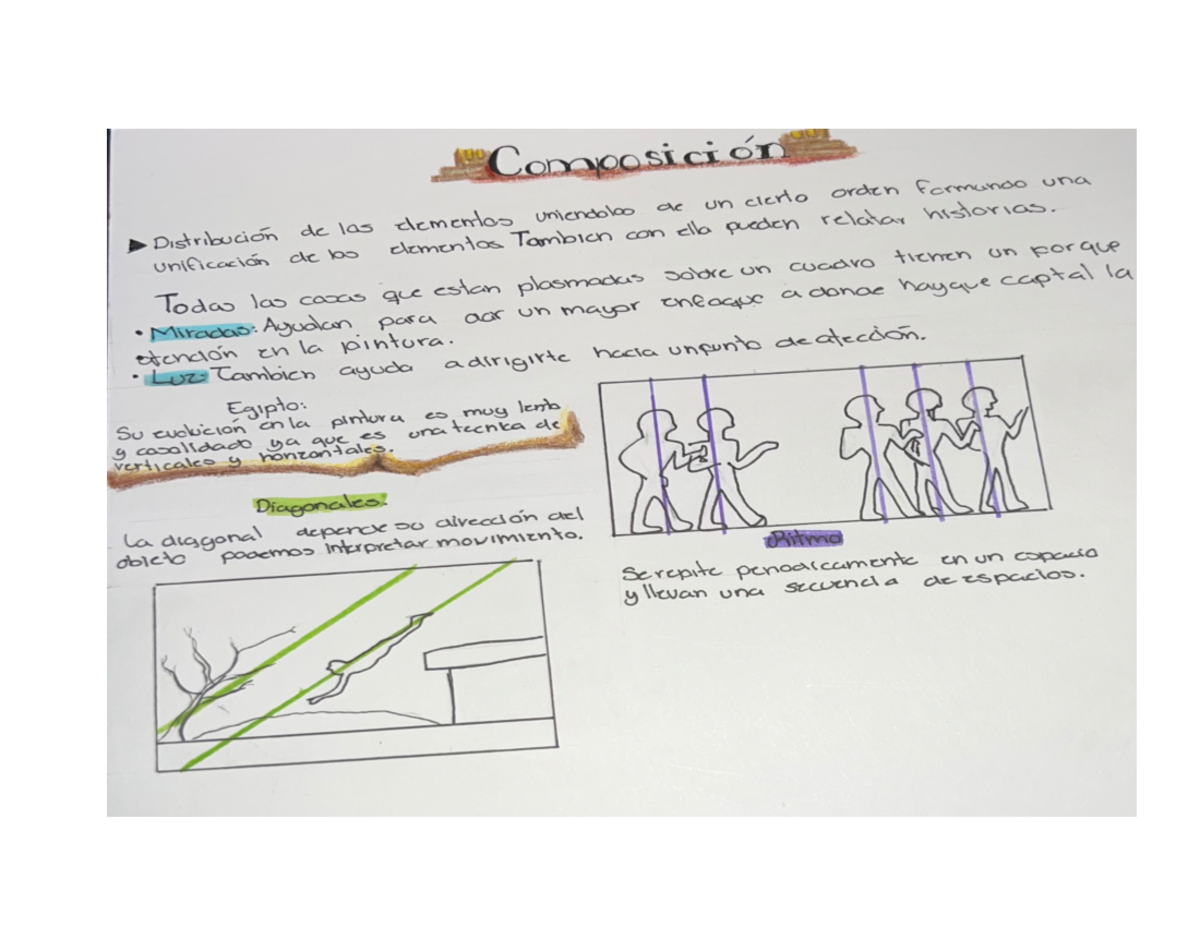 Composición
Distribución de las elementos uniendolos de un cierto orden formando una
unificación de los elementos Tambien con ella pueden relatar historias.
Todas las cosas que estan plasmadas sobre un cuadro tienen un porque
• Miradas: Ayudan para dar un mayor enfoque a donde hay que captal la
atención en la pintura.
• Luz: Tambien ayuda a dirigirte hacia un punto de atección.
Egipto:
Su evolución en la pintura es muy lenta
y ya que es una tecnica de
verticales y horizontales.
Diagonales:
La diagonal depende su dirección del
objeto podemos interpretar movimiento.
Ritmo
Se repite periodicamente en un espacio
y llevan una secuencia de espacios.